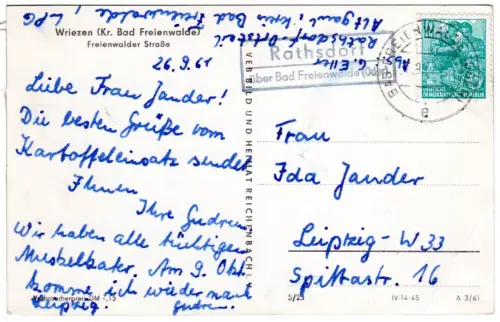 Wriezen (Kr. Bad Freienwalde)
Freienwalder Straße
26.9.61
Liebe Frau Jander!
Die besten Grüße vom
Kartoffeleinsatz sendet
Ihnen
Ihre Gudrun
Wir haben alle tüchtigen
Muskelkater. Am 9. Okt.
komme ich wieder nach
Leipzig! Gudrun.
Verbraucherpreis DM -,15
VEB BILD UND HEIMAT REICHENBACH I. V.
Abs. G. Eller
Rathsdorf-Ortsteil
Altgaul, Kreis Bad
Freienwalde, LPG
Rathsdorf
über Bad Freienwalde (Oder)
BAD FREIENWALDE (ODER)
e
DEUTSCHE
DEMOKRATISCHE REPUBLIK
Frau
Ida Jander
Leipzig-W 33
Spittastr. 16
5/23
IV-14-45
A 3/61